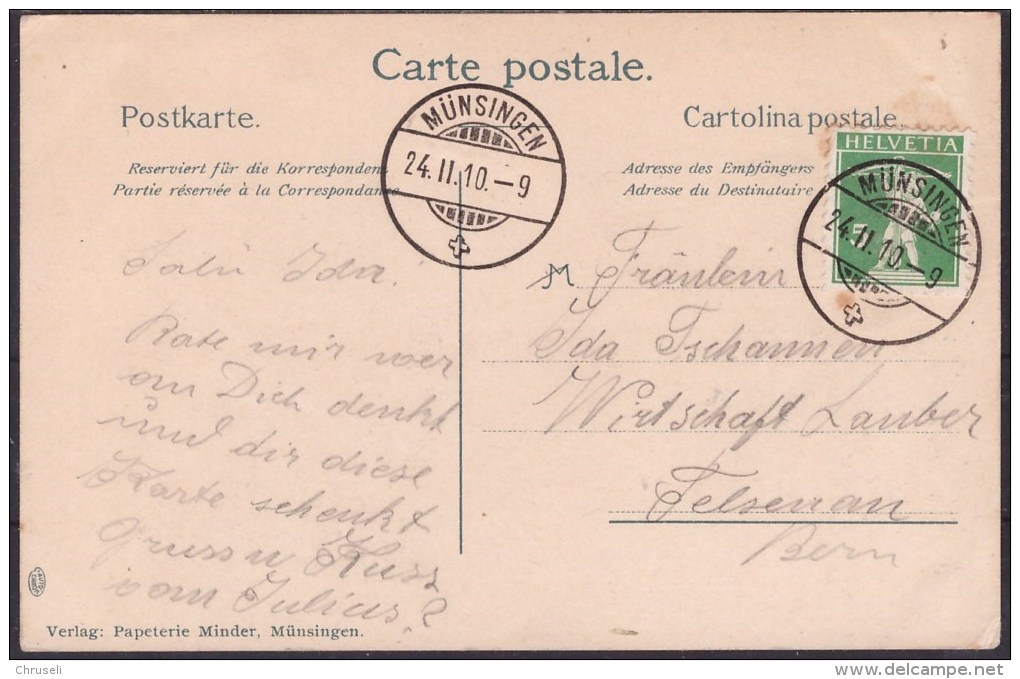 Carte postale.
Postkarte.
Cartolina postale.
Reserviert für die Korrespondenz
Partie réservée à la Correspondance
Adresse des Empfängers
Adresse du Destinataire
MÜNSINGEN
24.II.10.-9
HELVETIA
5
MÜNSINGEN
24.II.10.-9
Salü Ida.
Rate mir wer
an Dich denkt
und dir diese
Karte schenkt
Gruss u Kuss
vom Julius?
Fräulein
Ida Tschannen
Wirtschaft Lauber
Felsenau
Bern
Verlag: Papeterie Minder, Münsingen.
Chruseli
delcampe.net